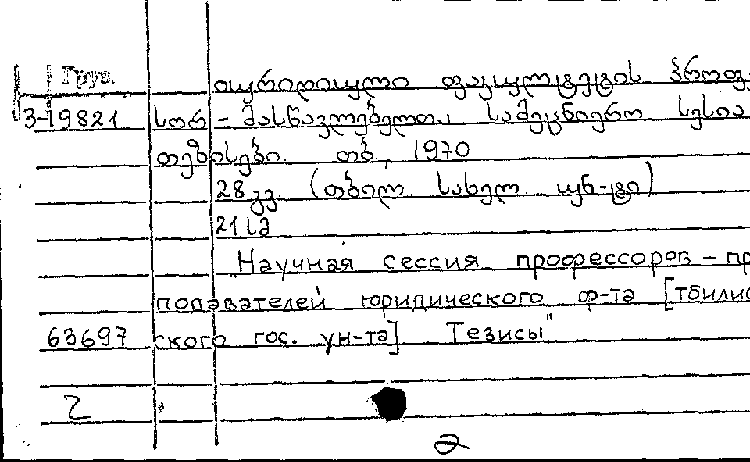 Груз.
იურიდიული ფაკულტეტის პროფე
3-19821 სორ-მასწავლებელთა სამეცნიერო სესია
თეზისები. თბ., 1970
28 გვ. (თბილ სახელ უნ-ტი)
21 სმ
"Научная сессия профессоров-пр
подавателей юридического ф-та [тбилис
63697 ского гос. ун-та] Тезисы"